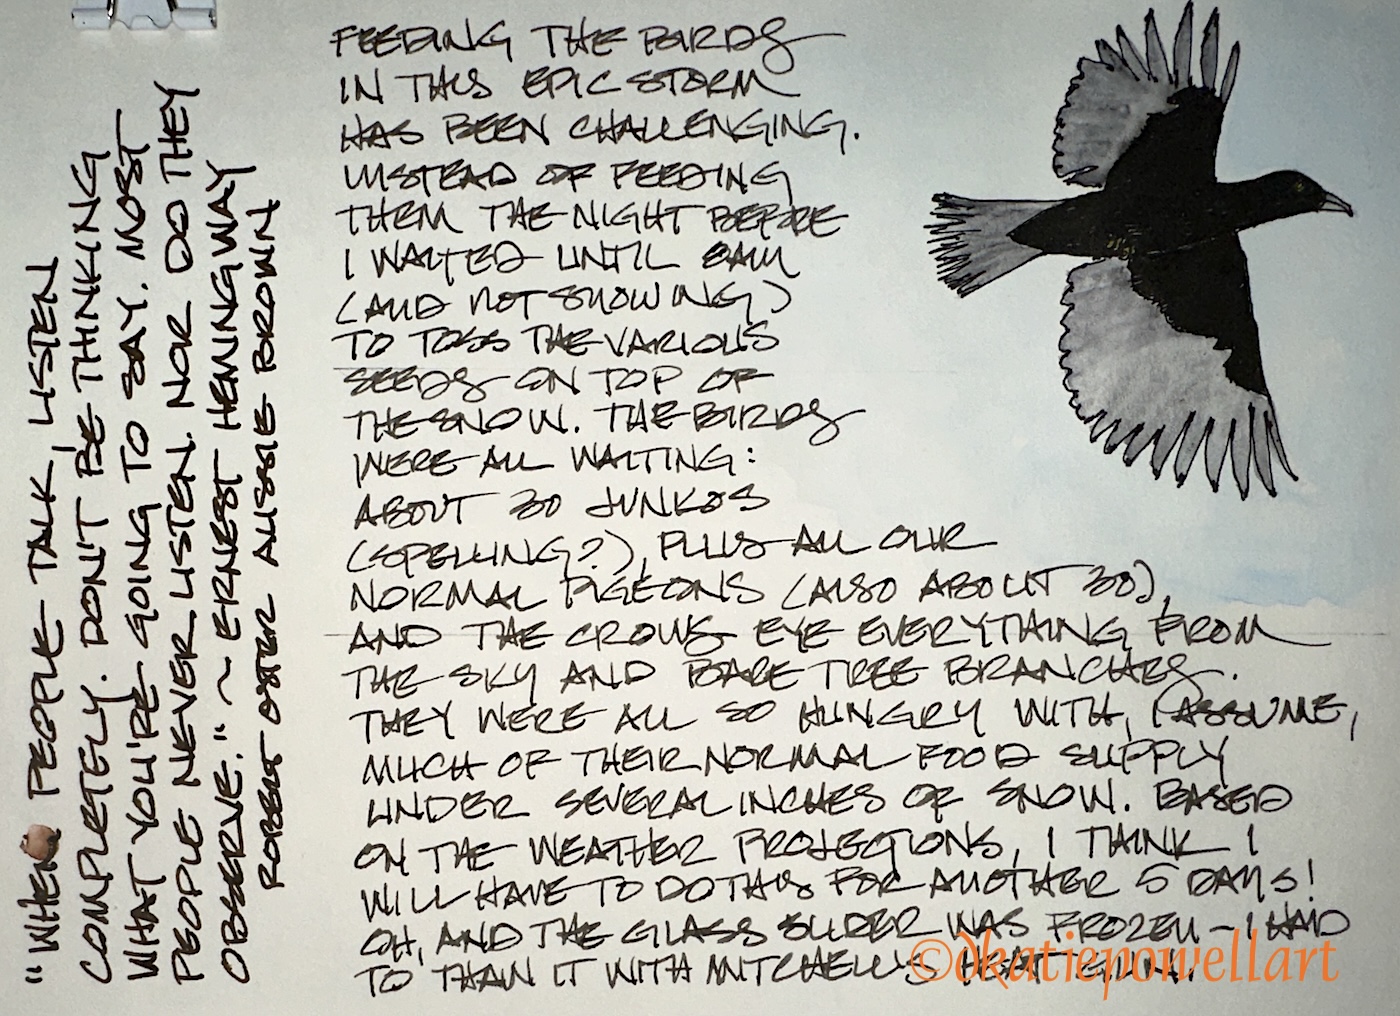 FEEDING THE BIRDS
IN THIS EPIC STORM
HAS BEEN CHALLENGING.
INSTEAD OF FEEDING
THEM THE NIGHT BEFORE
I WAITED UNTIL 8AM
(AND NOT SNOWING)
TO TOSS THE VARIOUS
SEEDS ON TOP OF
THE SNOW. THE BIRDS
WERE ALL WAITING:
ABOUT 30 JUNKOS
(SPELLING?), PLUS ALL OUR
NORMAL PIGEONS (ALSO ABOUT 30),
AND THE CROWS EYE EVERYTHING FROM
THE SKY AND BARE TREE BRANCHES.
THEY WERE ALL SO HUNGRY WITH, I ASSUME,
MUCH OF THEIR NORMAL FOOD SUPPLY
UNDER SEVERAL INCHES OF SNOW. BASED
ON THE WEATHER PROJECTIONS, I THINK I
WILL HAVE TO DO THIS FOR ANOTHER 5 DAYS!
OH, AND THE GLASS SLIDER WAS FROZEN ~ I HAD
TO THAW IT WITH MITCHELL'S HEAT GUN!
"WHEN PEOPLE TALK, LISTEN
COMPLETELY. DON'T BE THINKING
WHAT YOU'RE GOING TO SAY. MOST
PEOPLE NEVER LISTEN. NOR DO THEY
OBSERVE." ~ ERNEST HEMINGWAY
ROBERT OSTER AUSSIE BROWN
©dkatiepowellart